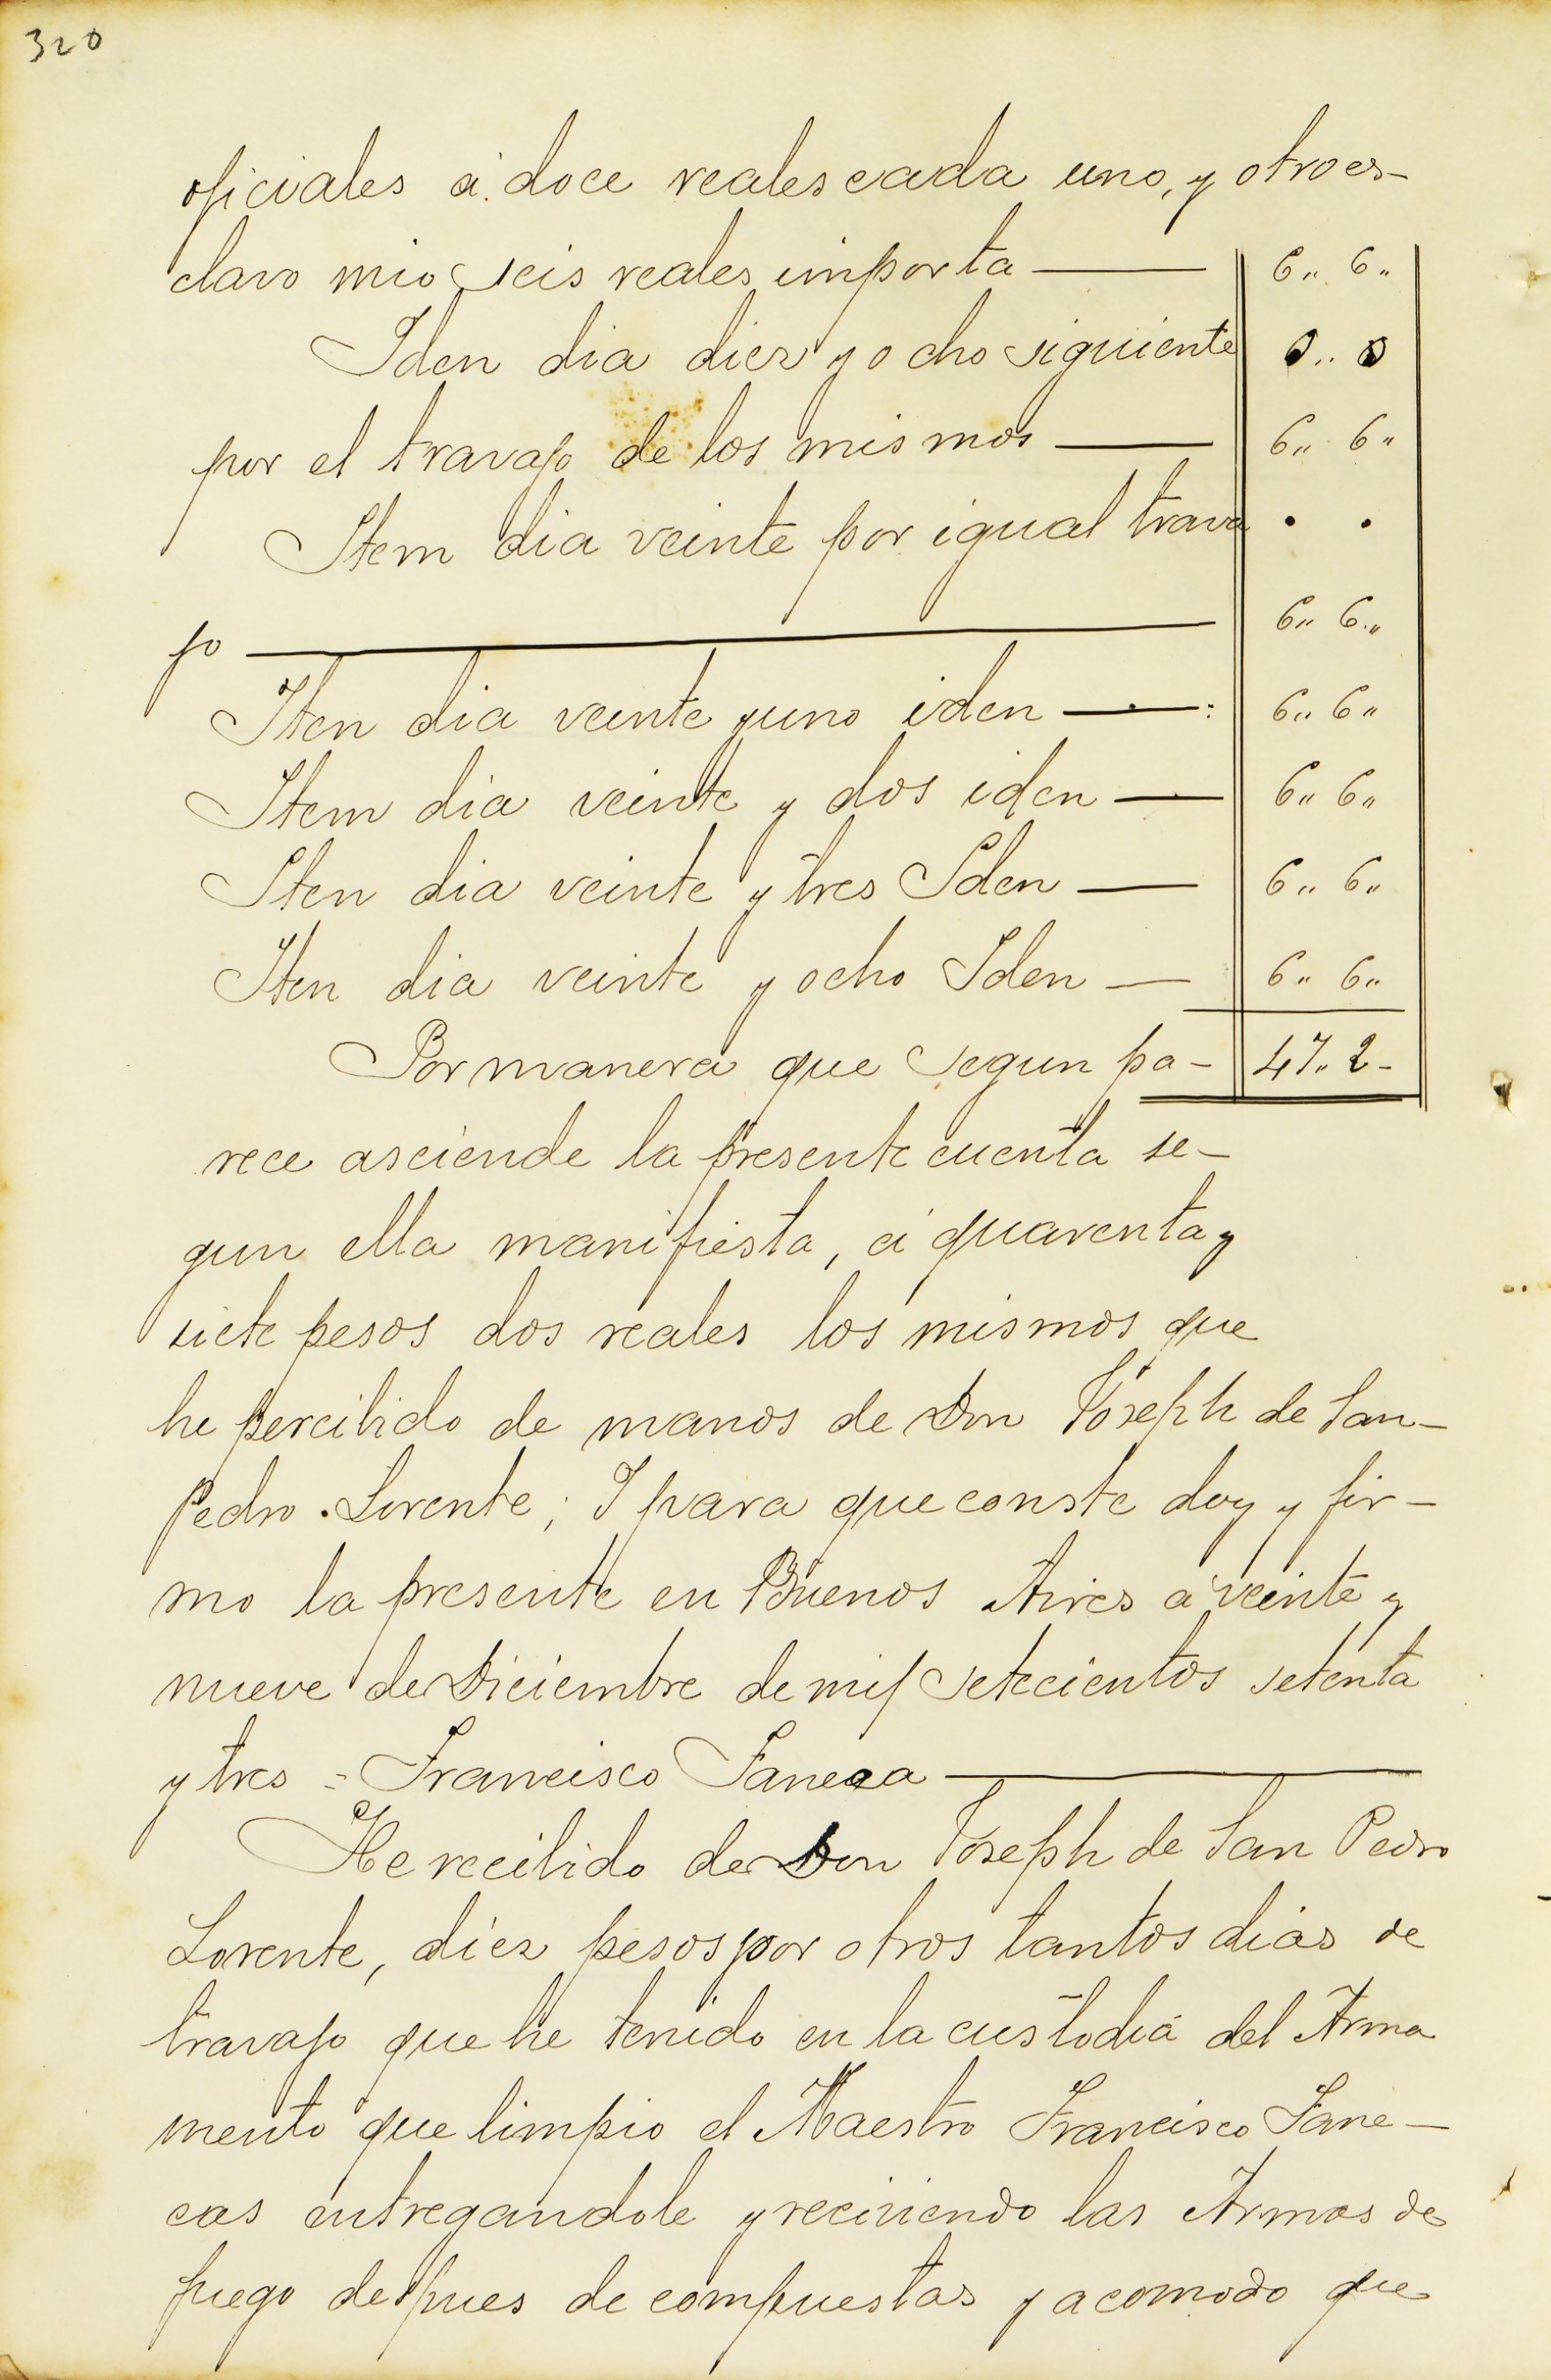 320
oficiales á doce reales cada uno, y otro es-
clavo mio seis reales importa — 6,, 6,,
Iden dia diez y ocho siguiente 0,, 0
por el travajo de los mismos — 6,, 6,,
Item dia veinte por igual trava . .
jo — 6,, 6,,
Iten dia veinte y uno iden — : 6,, 6,,
Item dia veinte y dos iden — 6,, 6,,
Iten dia veinte y tres Iden — 6,, 6,,
Iten dia veinte y ocho Iden — 6,, 6,,
Por manera que segun pa- 47,, 2-
rece asciende la presente cuenta se-
gun ella manifiesta, á quarenta y
siete pesos dos reales los mismos que
he percibido de manos de Don Joseph de San-
Pedro Lorente; I para que conste doy y fir-
mo la presente en Buenos Aires á veinte y
nueve de Diciembre de mil setecientos setenta
y tres = Francisco Faneca —
He recibido de Don Joseph de San Pedro
Lorente, diez pesos por otros tantos dias de
travajo que he tenido en la custodia del Arma
mento que limpio el Maestro Francisco Fane-
cas entregandole y reciviendo las Armas de
fuego despues de compuestas y acomodo que